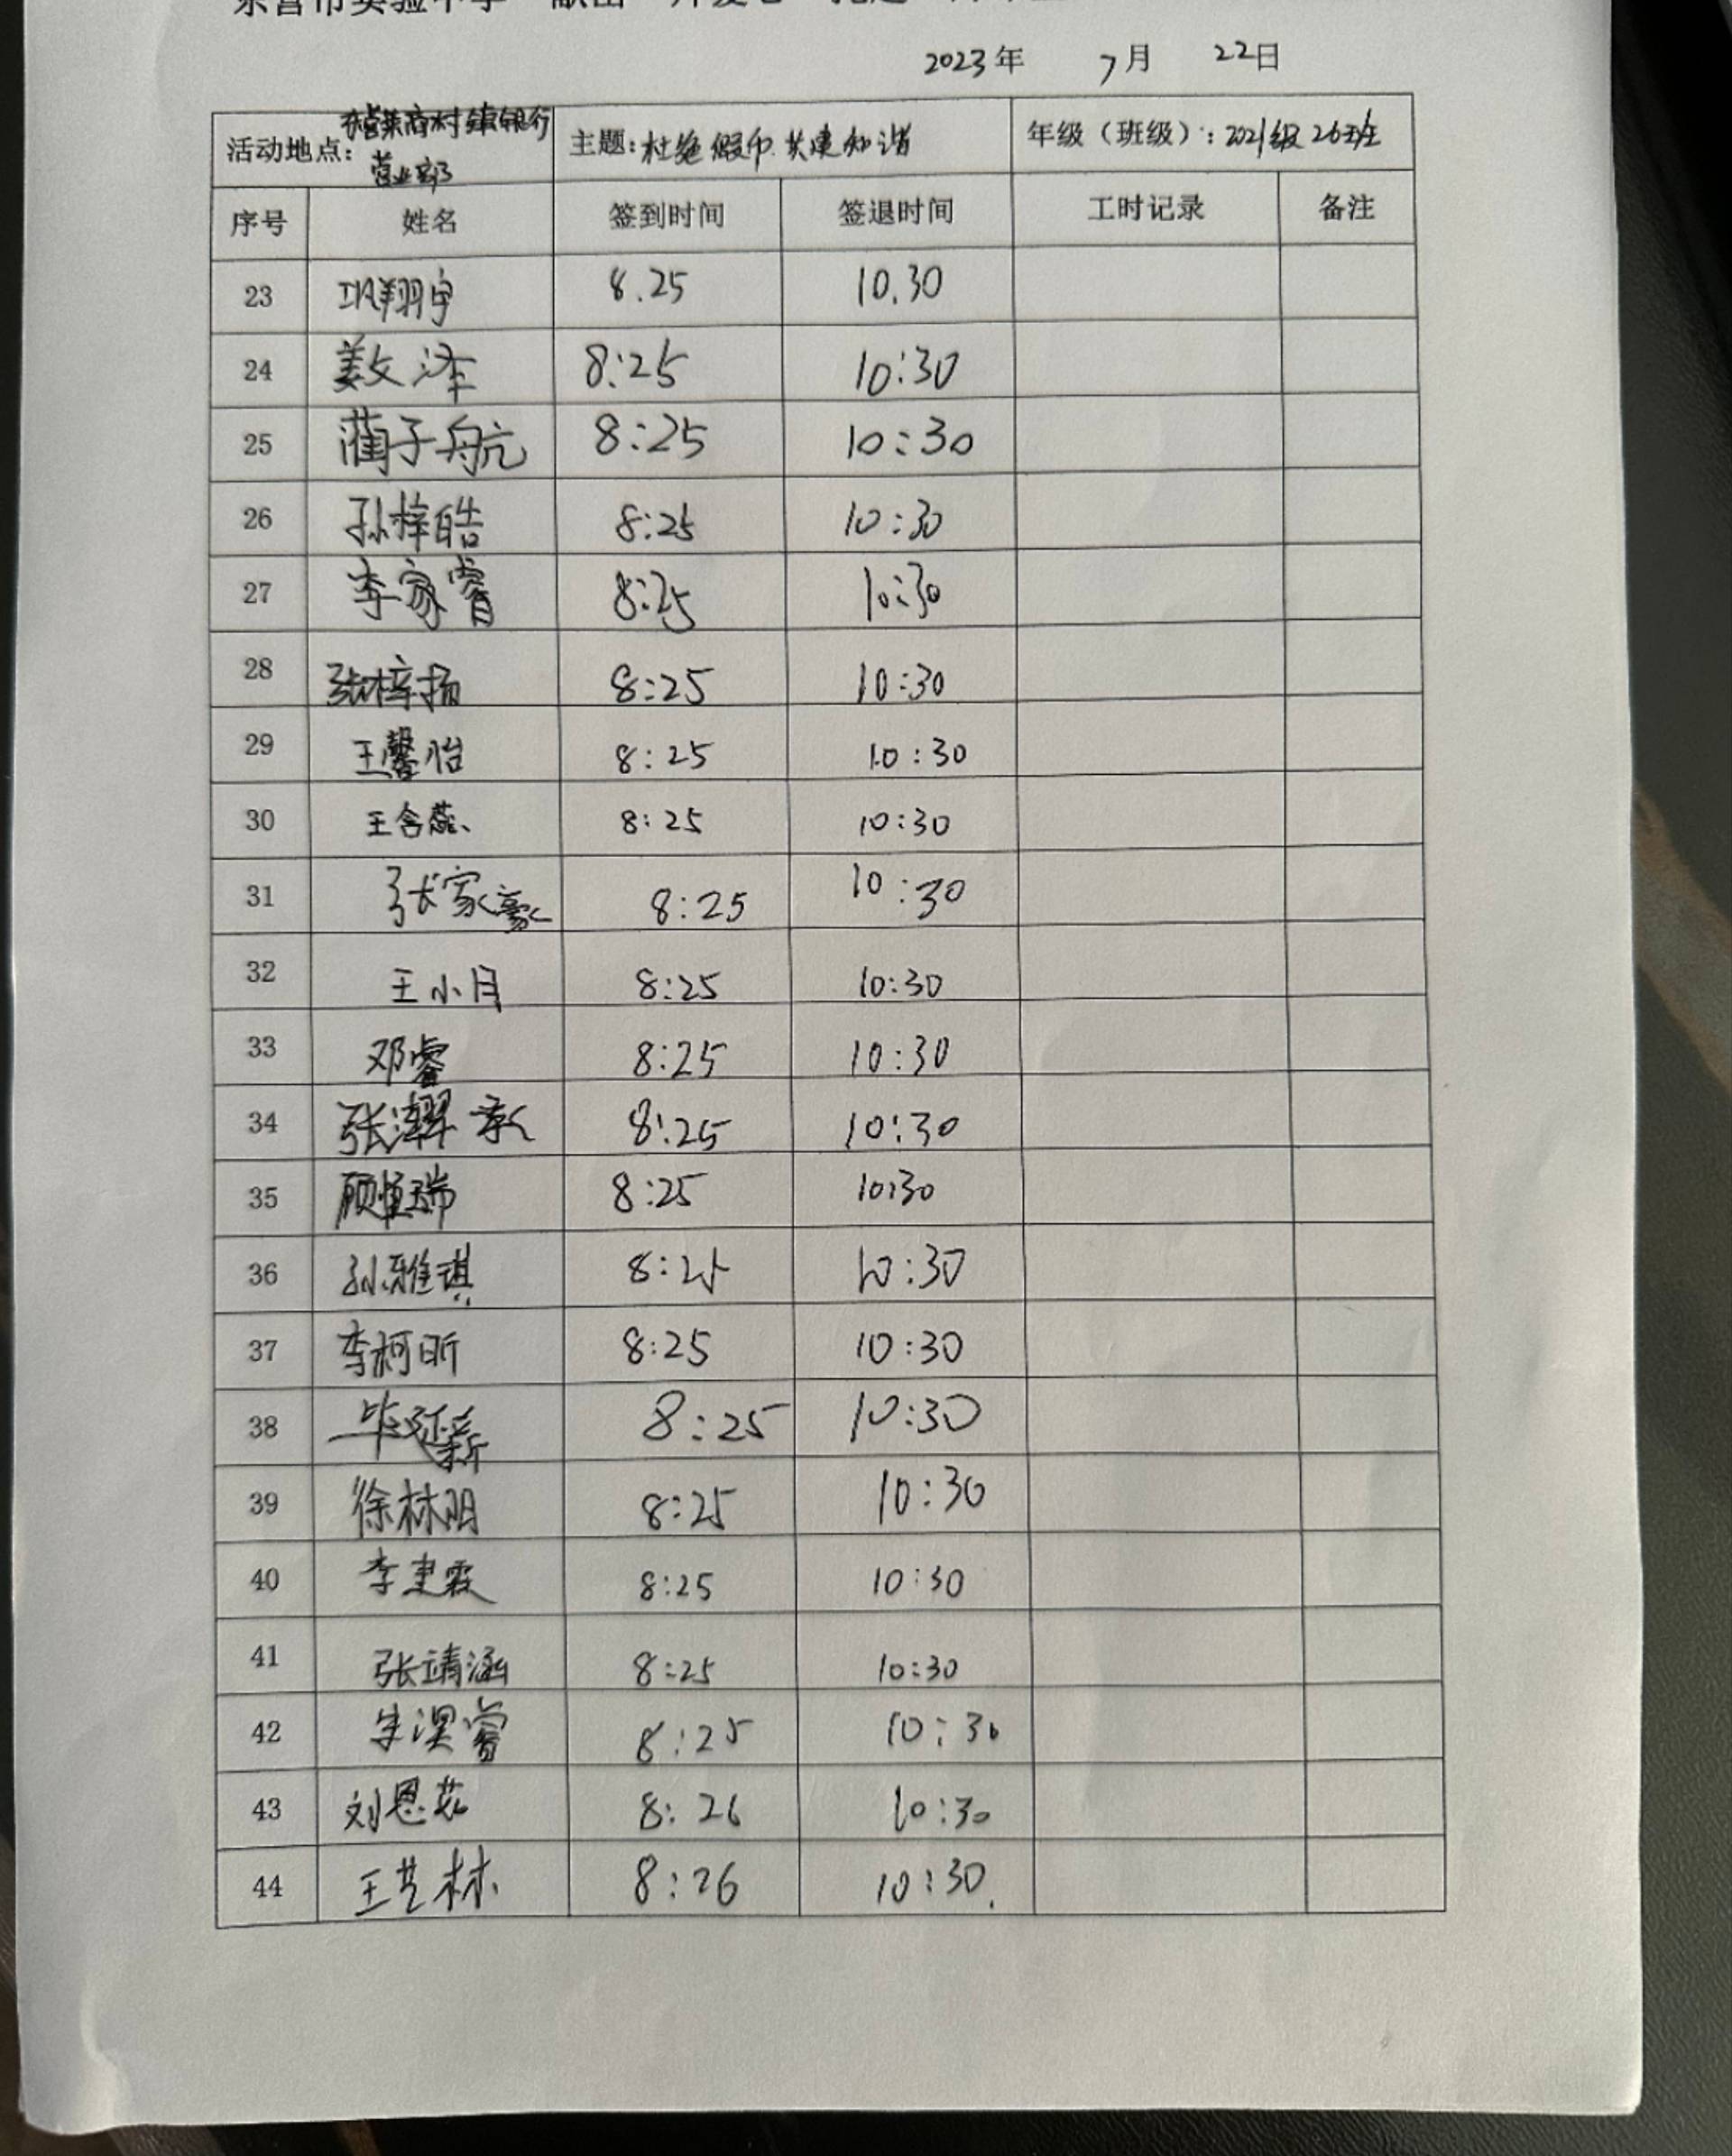 2023年 7月 22日
活动地点: 东营莱商村镇银行 主题: 杜绝假币 共建和谐 年级（班级）: 2021级26班
营业部
序号 姓名 签到时间 签退时间 工时记录 备注
23 翔宇 8.25 10.30
24 姜文泽 8:25 10:30
25 蔺子航 8:25 10:30
26 孙梓皓 8:25 10:30
27 李家睿 8:25 10:30
28 张梓扬 8:25 10:30
29 王馨怡 8:25 10:30
30 王含蕊 8:25 10:30
31 张家豪 8:25 10:30
32 王小月 8:25 10:30
33 邓睿 8:25 10:30
34 张 8:25 10:30
35 顾恒瑞 8:25 10:30
36 孙雅琪 8:25 10:30
37 李柯昕 8:25 10:30
38 毕延新 8:25 10:30
39 徐林 8:25 10:30
40 李建霖 8:25 10:30
41 张靖涵 8:25 10:30
42 朱淏睿 8:25 10:30
43 刘恩茹 8:26 10:30
44 王艺林 8:26 10:30